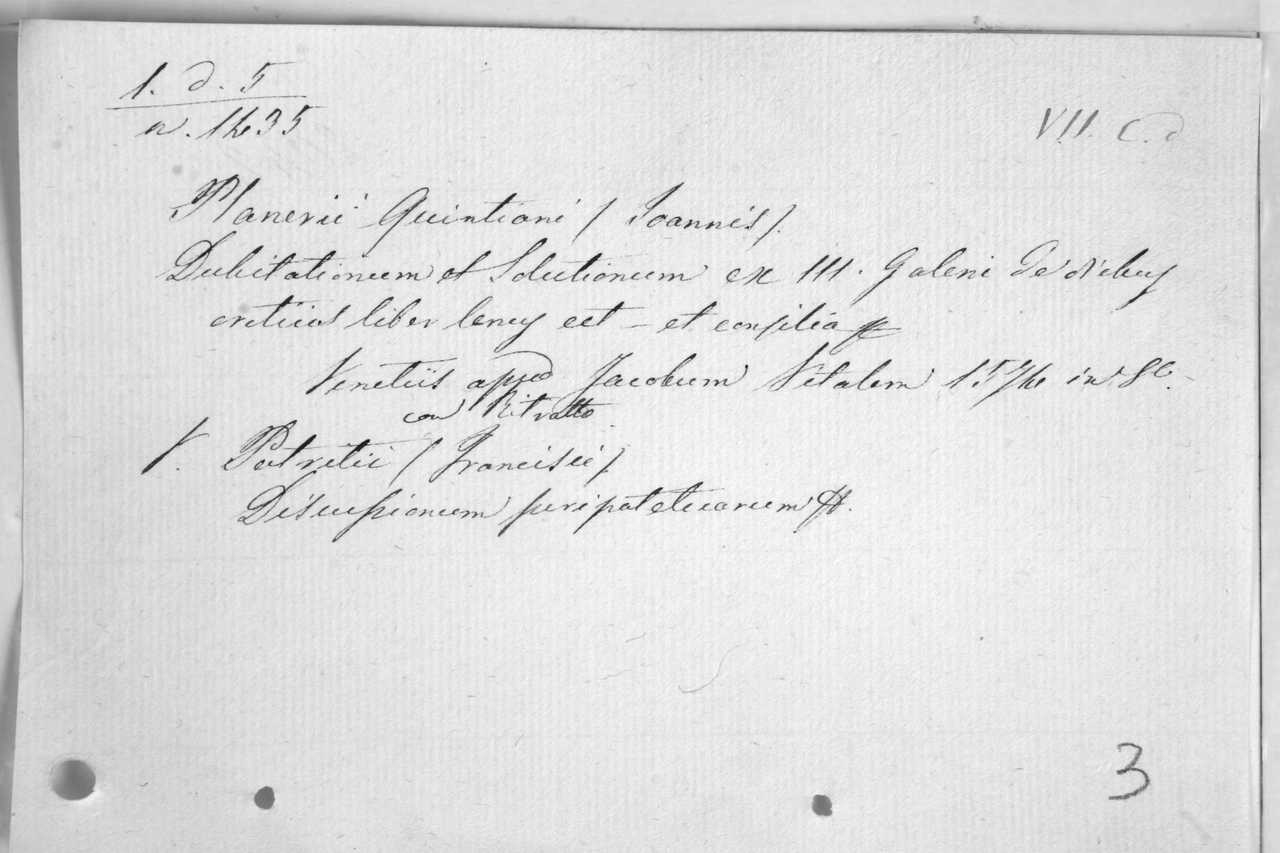 1. d. 5
n. 1635
VII. C. d
Planerii Quintiani (Joannis).
Dubitationum et Solutionum ex III. Galeni de diebus
creticis liber lenus ect - et consilia
Venetiis apud Jacobum Vitalem 1574 in 8º.
con Ritratto
V. Patritii (Francisci).
Discussionum peripateticarum
3